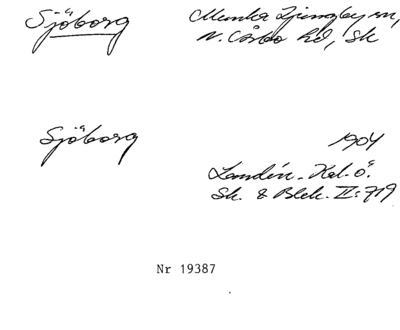 Sjöborg
Munka Ljungby sn,
N. Åsbo hd, Sk
Sjöborg
1904
Landén - Kal. ö.
Sk. & Blek. II:719
Nr 19387